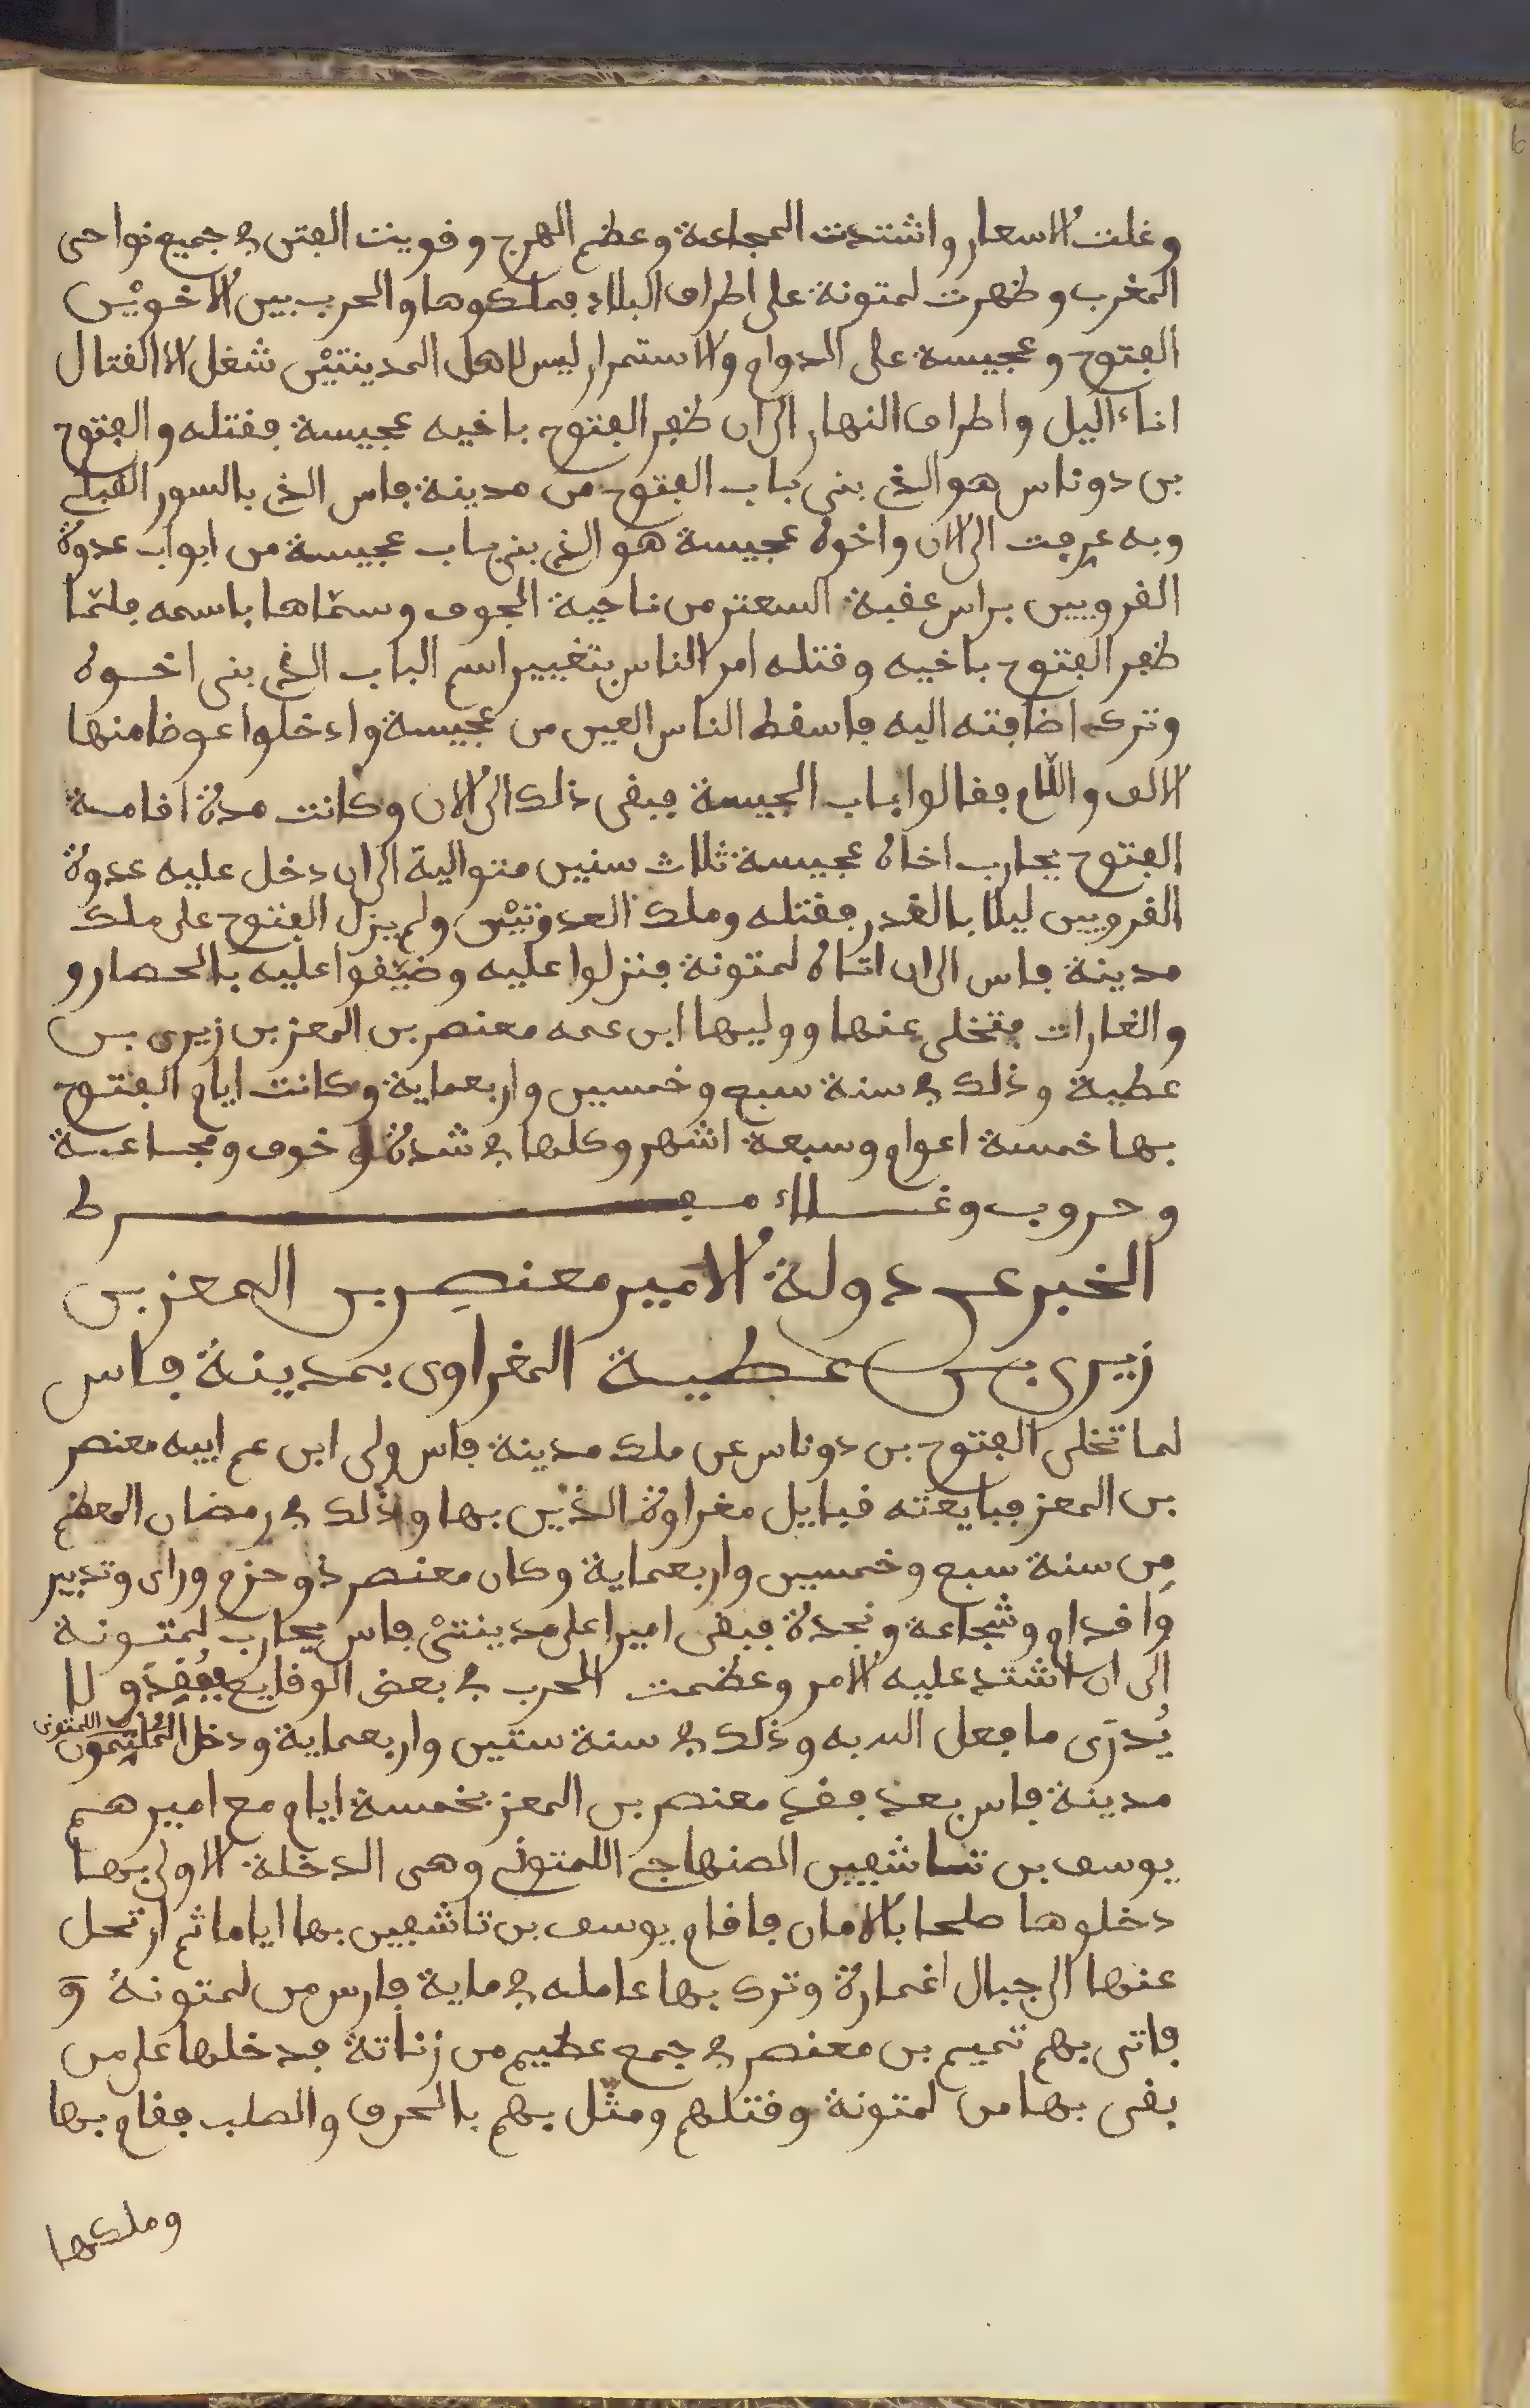 وغلت الاسعار واشتدت المجاعة وعظم الهرج وقويت الفتن في جميع نواحى
المغرب وظهرت لمتونة على اطراف البلاد فملكوها والحرب بين الاخويْن
الفتوح وعجيسة على الدوام والاستمرار ليس لاهل المدينتيْن شغل الا القتال
اناء اليل واطراف النهار الى ان ظفر الفتوح باخيه عجيسة فقتله والفتوح
بن دوناس هو الذي بنى باب الفتوح من مدينة فاس الذي بالسور القبلي
وبه عرفت الى الان واخوه عجيسة هو الذي بنى باب عجيسة من ابواب عدوة
القرويين براس عقبة السعتر من ناحية الجوف وسمّاها باسمه فلمّا
ظفر الفتوح باخيه وقتله امر الناس بتغيير اسم الباب الذي بنى اخوه
وترك اضافته اليه فاسقط الناس العين من عجيسة وادخلوا عوضا منها
الالف واللّام فقالوا باب الجيسة فبقى ذلك الى الان وكانت مدة اقامة
الفتوح يحارب اخاه عجيسة ثلاث سنين متوالية الى ان دخل عليه عدوة
القرويين ليلا بالغدر فقتله وملك العدوتيْن ولم يزل الفتوح على ملك
مدينة فاس الى ان اتاه لمتونة فنزلوا عليه وضيّقوا عليه بالحصار و
والغارات فتخلى عنها ووليها ابن عمه معنصر بن المعز بن زيرى بن
عطية وذلك في سنة سبع وخمسين واربعماية وكانت ايام الفتوح
بها خمسة اعوام وسبعة اشهر وكلها في شدة وخوف ومجاعة
وحروب وغلاء مفرط
الخبر عن دولة الامير معنصر بن المعز بن
زيرى بن عطية المغراوى بمدينة فاس
لما تخلى الفتوح بن دوناس عن ملك مدينة فاس ولى ابن عم ابيه معنصر
بن المعز فبايعته قبايل مغراوة الذيْن بها وذلك في رمضان المعظم
من سنة سبع وخمسين واربعماية وكان معنصر ذو حزم وراى وتدبير
واقدام وشجاعة ونجدة فبقى اميرا على مدينتىْ فاس يحارب لمتونة
الى ان اشتد عليه الامر وعظمت الحرب في بعض الوقايع ففُقِدَ ولا
يُدرَى ما فعل الله به وذلك في سنة ستين واربعماية ودخل المُلثِمون اللمتونى
مدينة فاس بعد فقد معنصر بن المعز بخمسة ايام مع اميرهم
يوسف بن تاشفين الصنهاجي اللمتوني وهى الدخلة الاولى بها
دخلوها صلحا بالامان فاقام يوسف بن تاشفين بها اياما ثم ارتحل
عنها الى جبال اغمارة وترك بها عامله في ماية فارس من لمتونة وَ
فاتى بهم تميم بن معنصر في جمع عظيم من زناتة فدخلها على من
بقى بها من لمتونة وقتلهم ومثّل بهم بالحرق والصلب فقام بها
وملكها